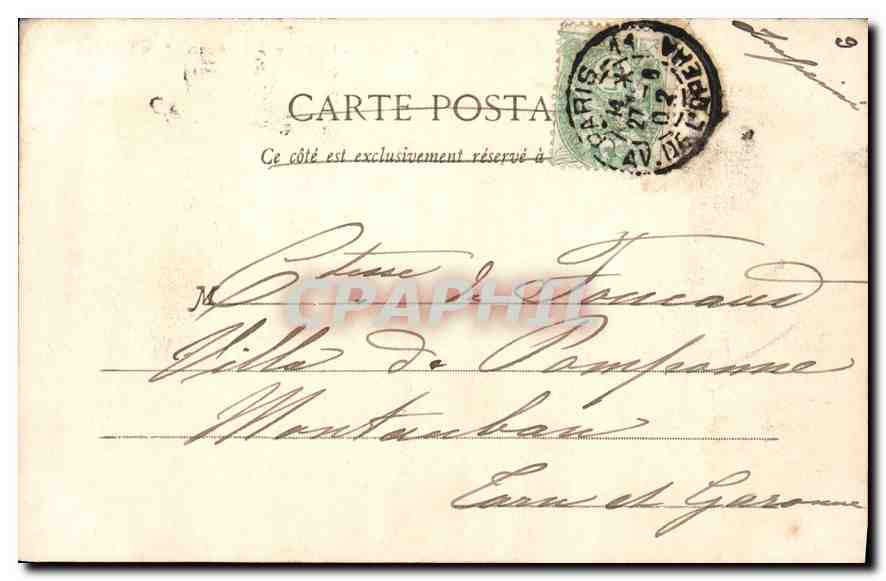 CARTE POSTA
Ce côté est exclusivement réservé à
PARIS 11
AV. DE L'OPERA
27 - 8
02
9
M
Ctesse de Foucaud
Villa de Pomponne
Montauban
Tarn et Garonne
CPAPHIL